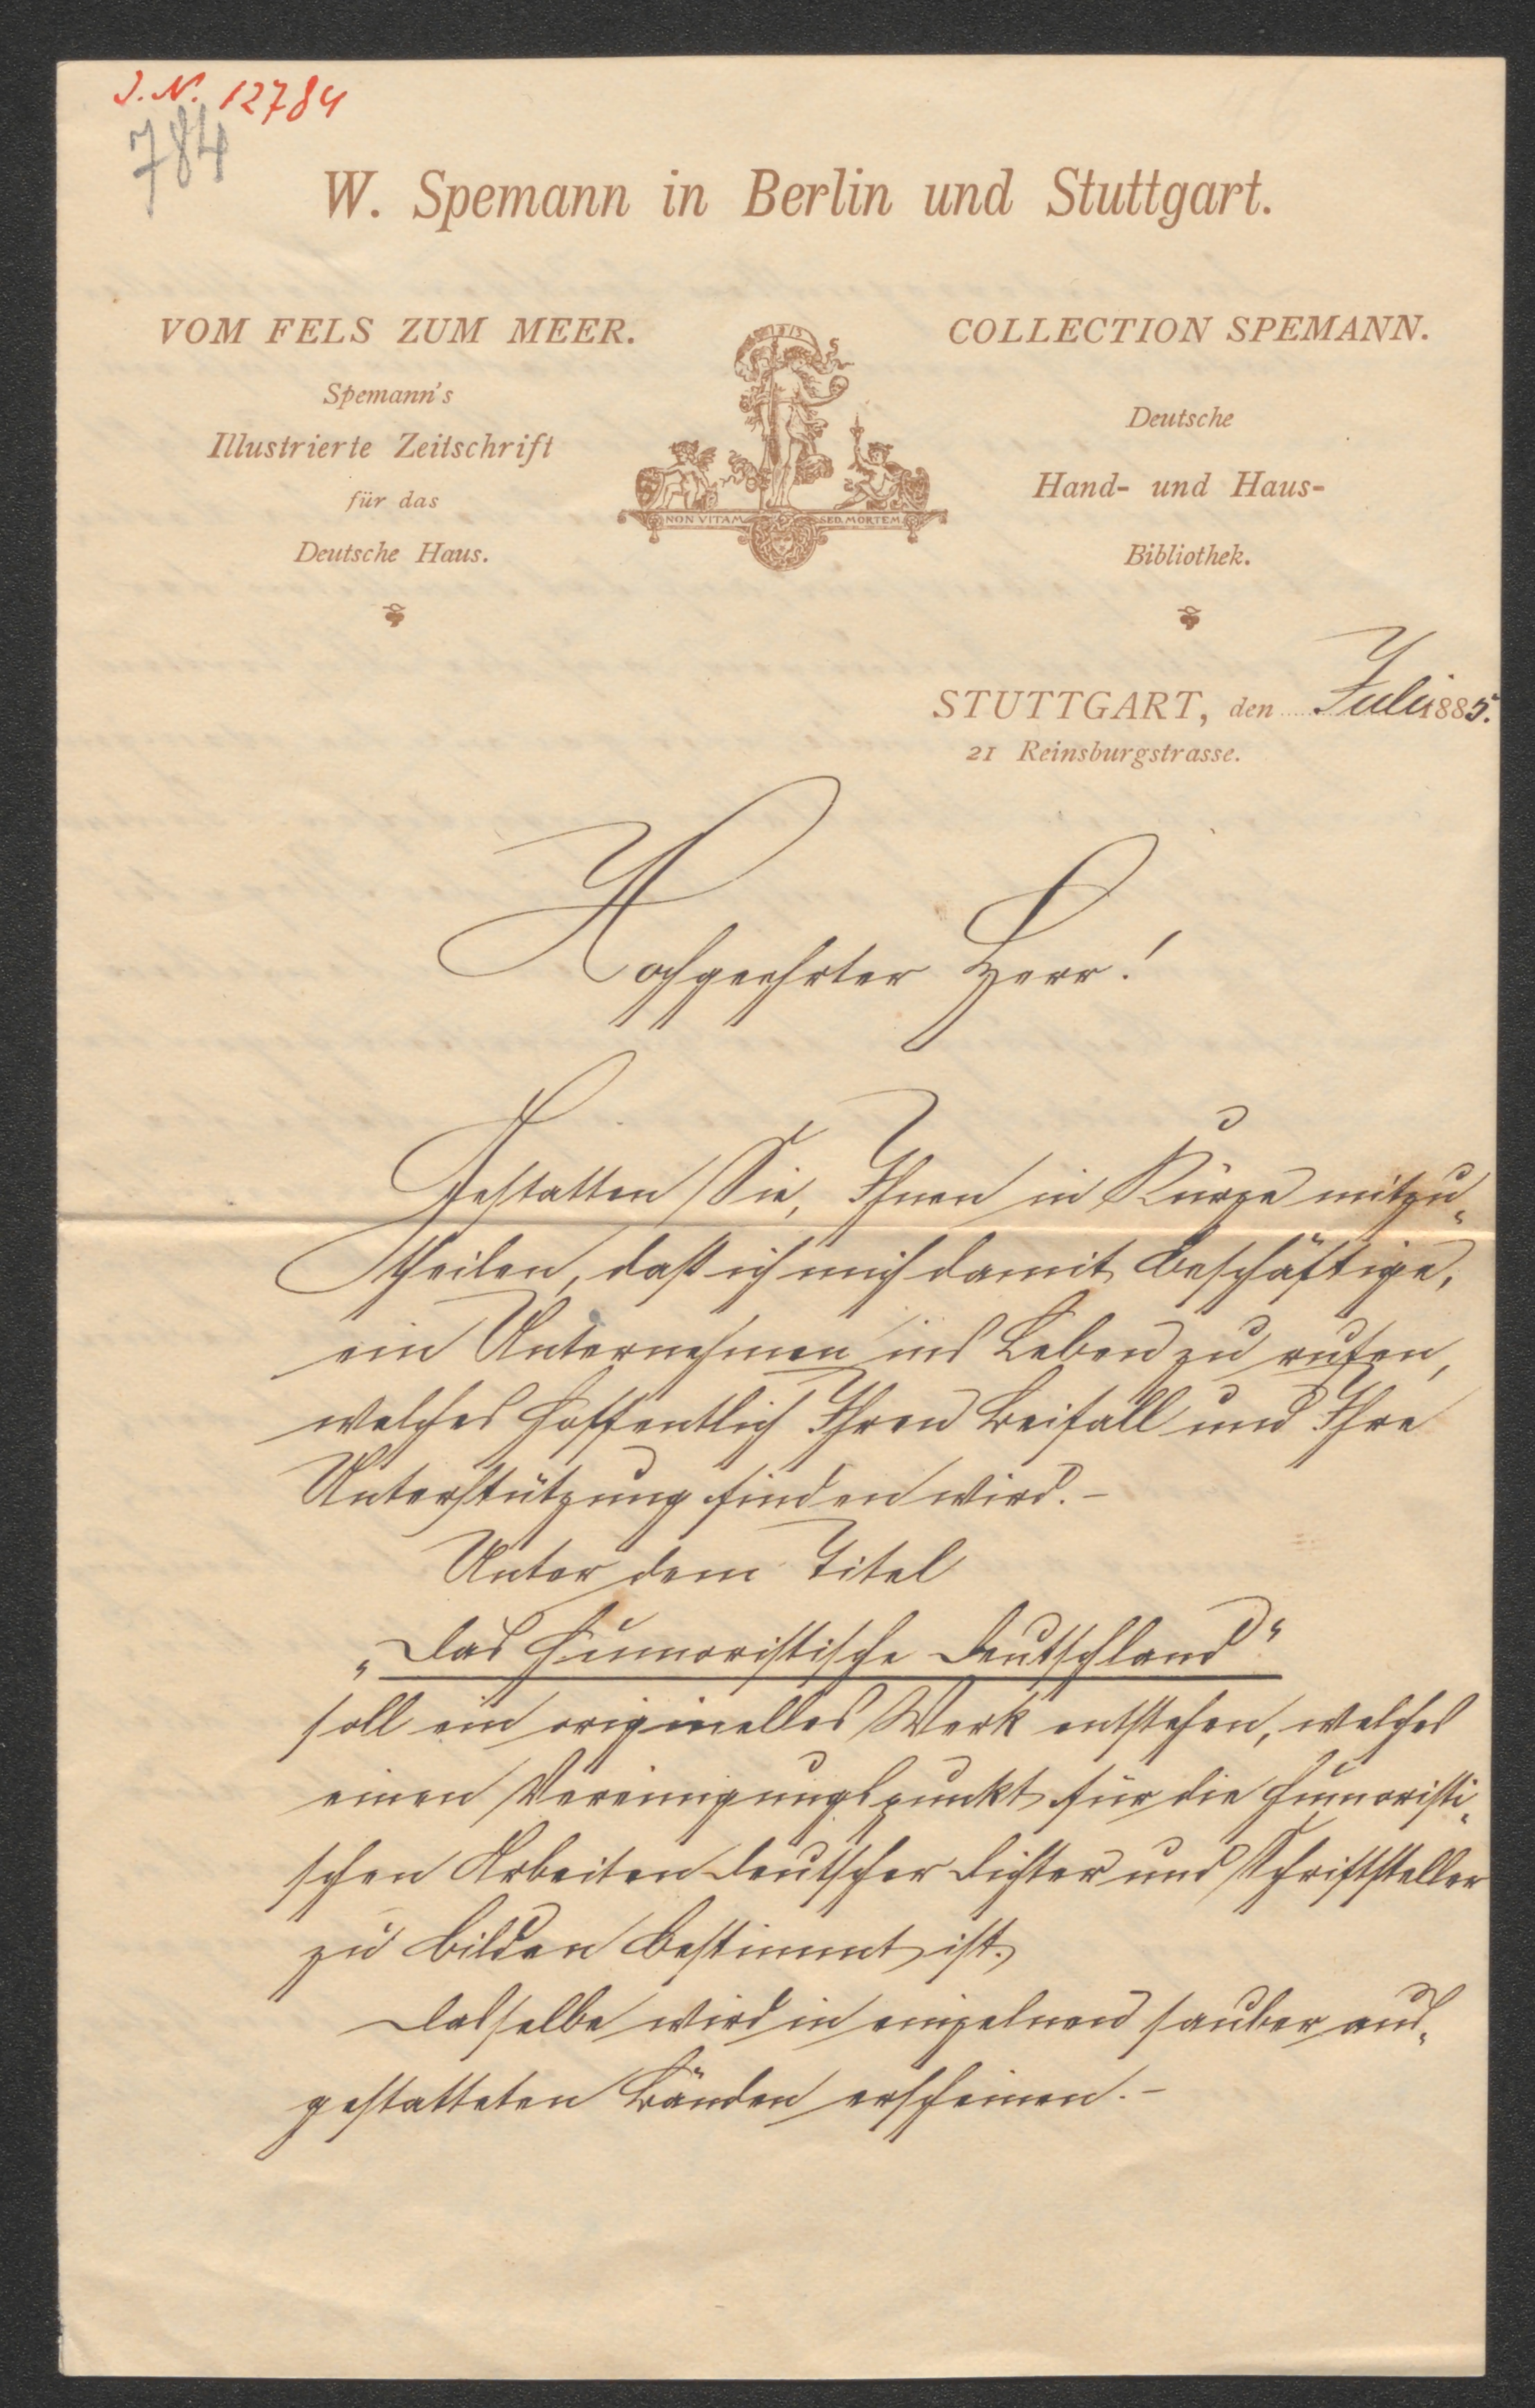 J. N. 12784
784
W. Spemann in Berlin und Stuttgart.
VOM FELS ZUM MEER.
Spemann's
Illustrierte Zeitschrift
für das
Deutsche Haus.
NON VITAM SED MORTEM
COLLECTION SPEMANN.
Deutsche
Hand- und Haus-
Bibliothek.
STUTTGART, den Juli 1885.
21 Reinsburgstrasse.
Hochgeehrter Herr!
Gestatten Sie, Ihnen in Kürze mitzu„
theilen, daß ich mich damit beschäftige,
ein Unternehmen ins Leben zu rufen,
welches hoffentlich Ihren Beifall und Ihre
Unterstützung finden wird. –
Unter dem Titel
„Das humoristische Deutschland“
soll ein originelles Werk entstehen, welches
einen Vereinigungspunkt für die humoristi„
schen Arbeiten deutscher Dichter und Schriftsteller
zu bilden bestimmt ist.
Dasselbe wird in einzelnen sauber aus„
gestatteten Bänden erscheinen. –